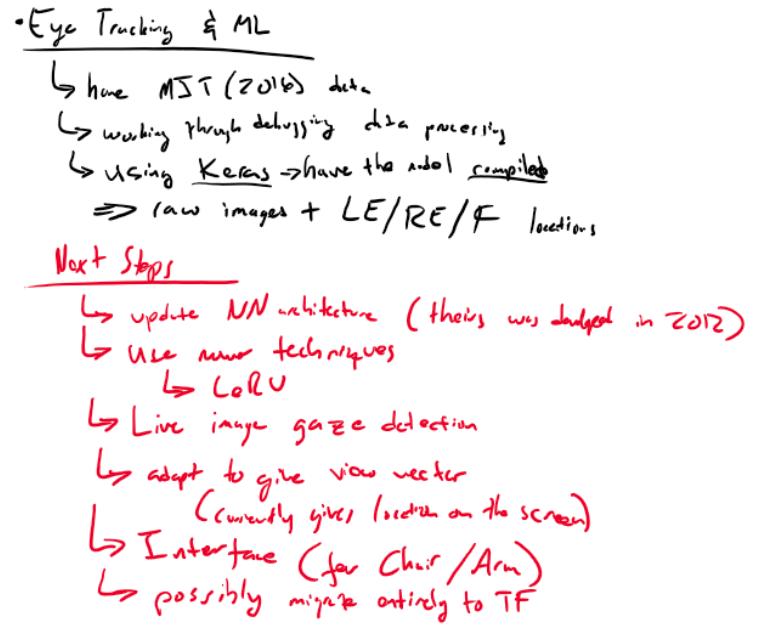 • Eye Tracking & ML
↳ have MIT (2016) data
↳ working through debugging data processing
↳ using Keras → have the model compiled
⇒ raw images + LE/RE/F locations
Next Steps
↳ update NN architecture (theirs was developed in 2012)
↳ Use newer techniques
↳ LeRU
↳ Live image gaze detection
↳ adapt to give view vector
(currently gives location on the screen)
↳ Interface (for Chair/Arm)
↳ possibly migrate entirely to TF